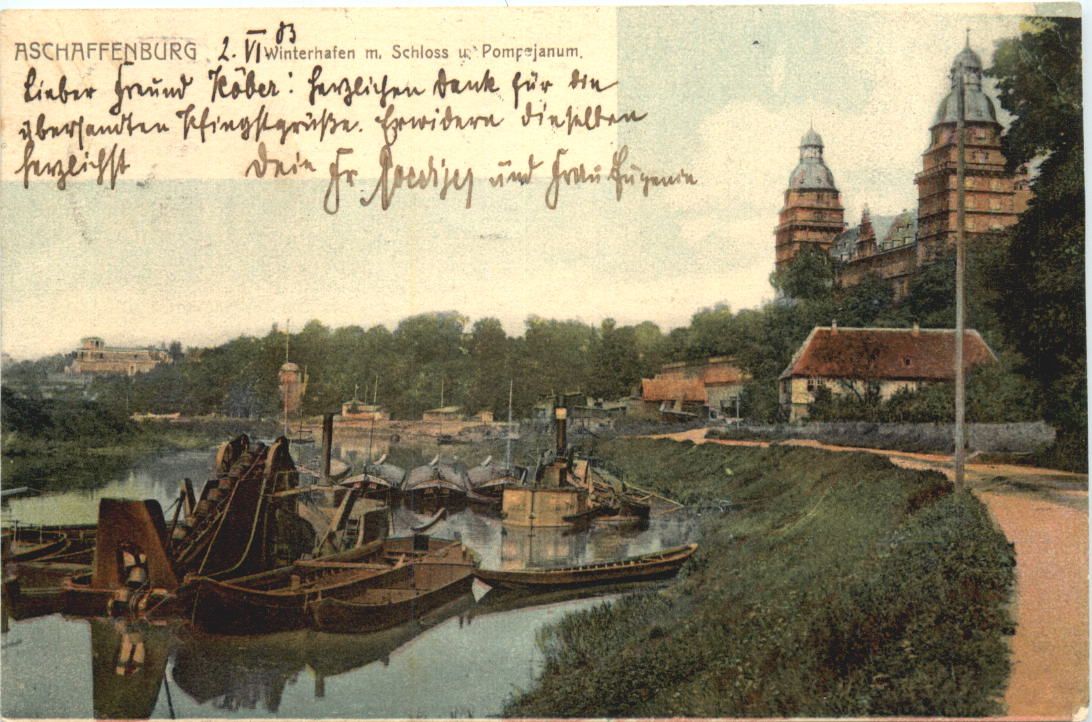 ASCHAFFENBURG 2. VI 03 Winterhafen m. Schloss u. Pompejanum.
Lieber Freund Köber: herzlichen Dank für die
übersandten Pfingstgrüße. Erwidern dieselben
herzlichst Dein Fr. und Frau Eugenie